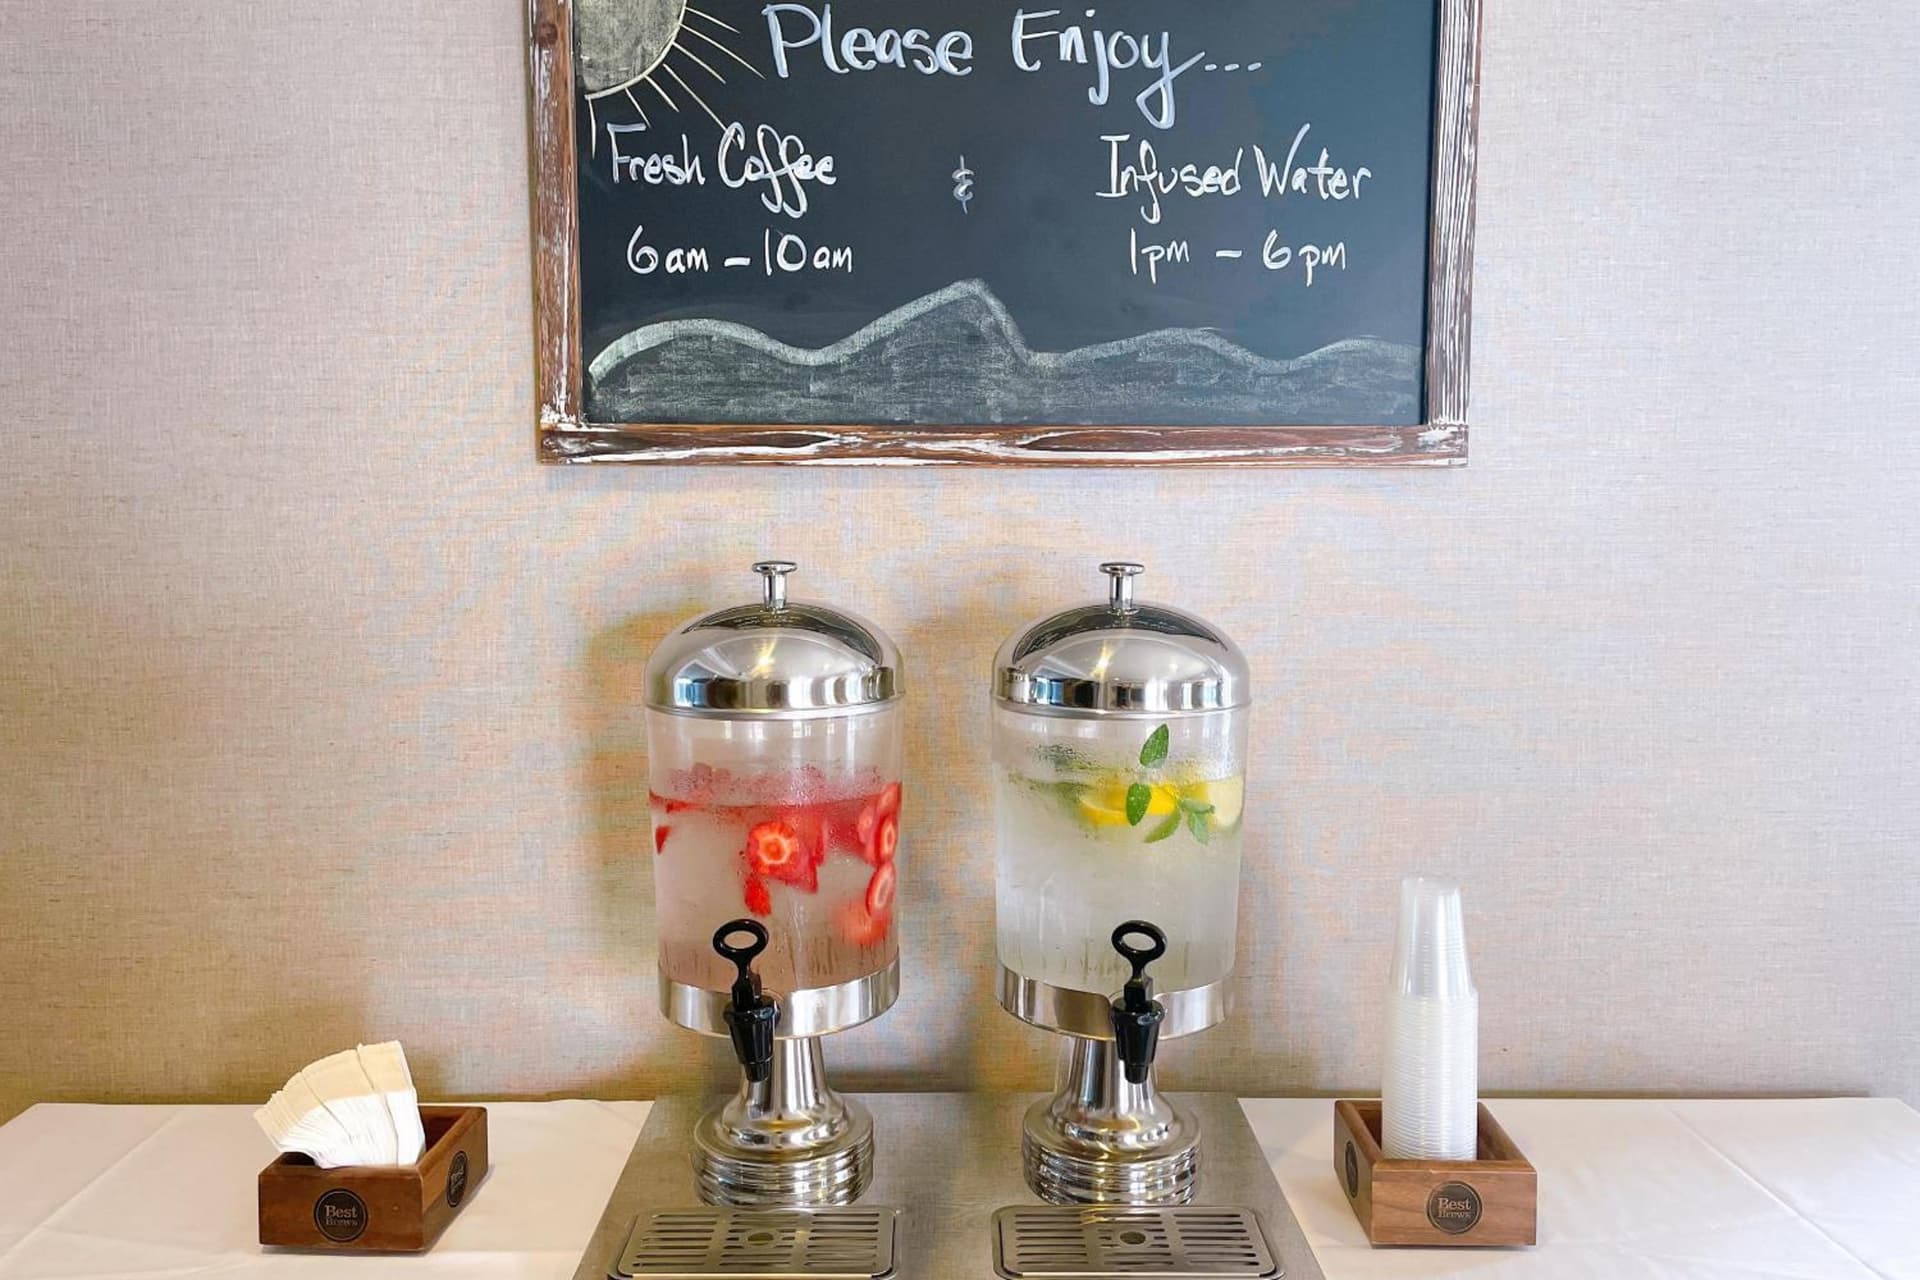 Please Enjoy...
Fresh Coffee & Infused Water
6am - 10am 1pm - 6pm
Best
Brews
Best
Brews